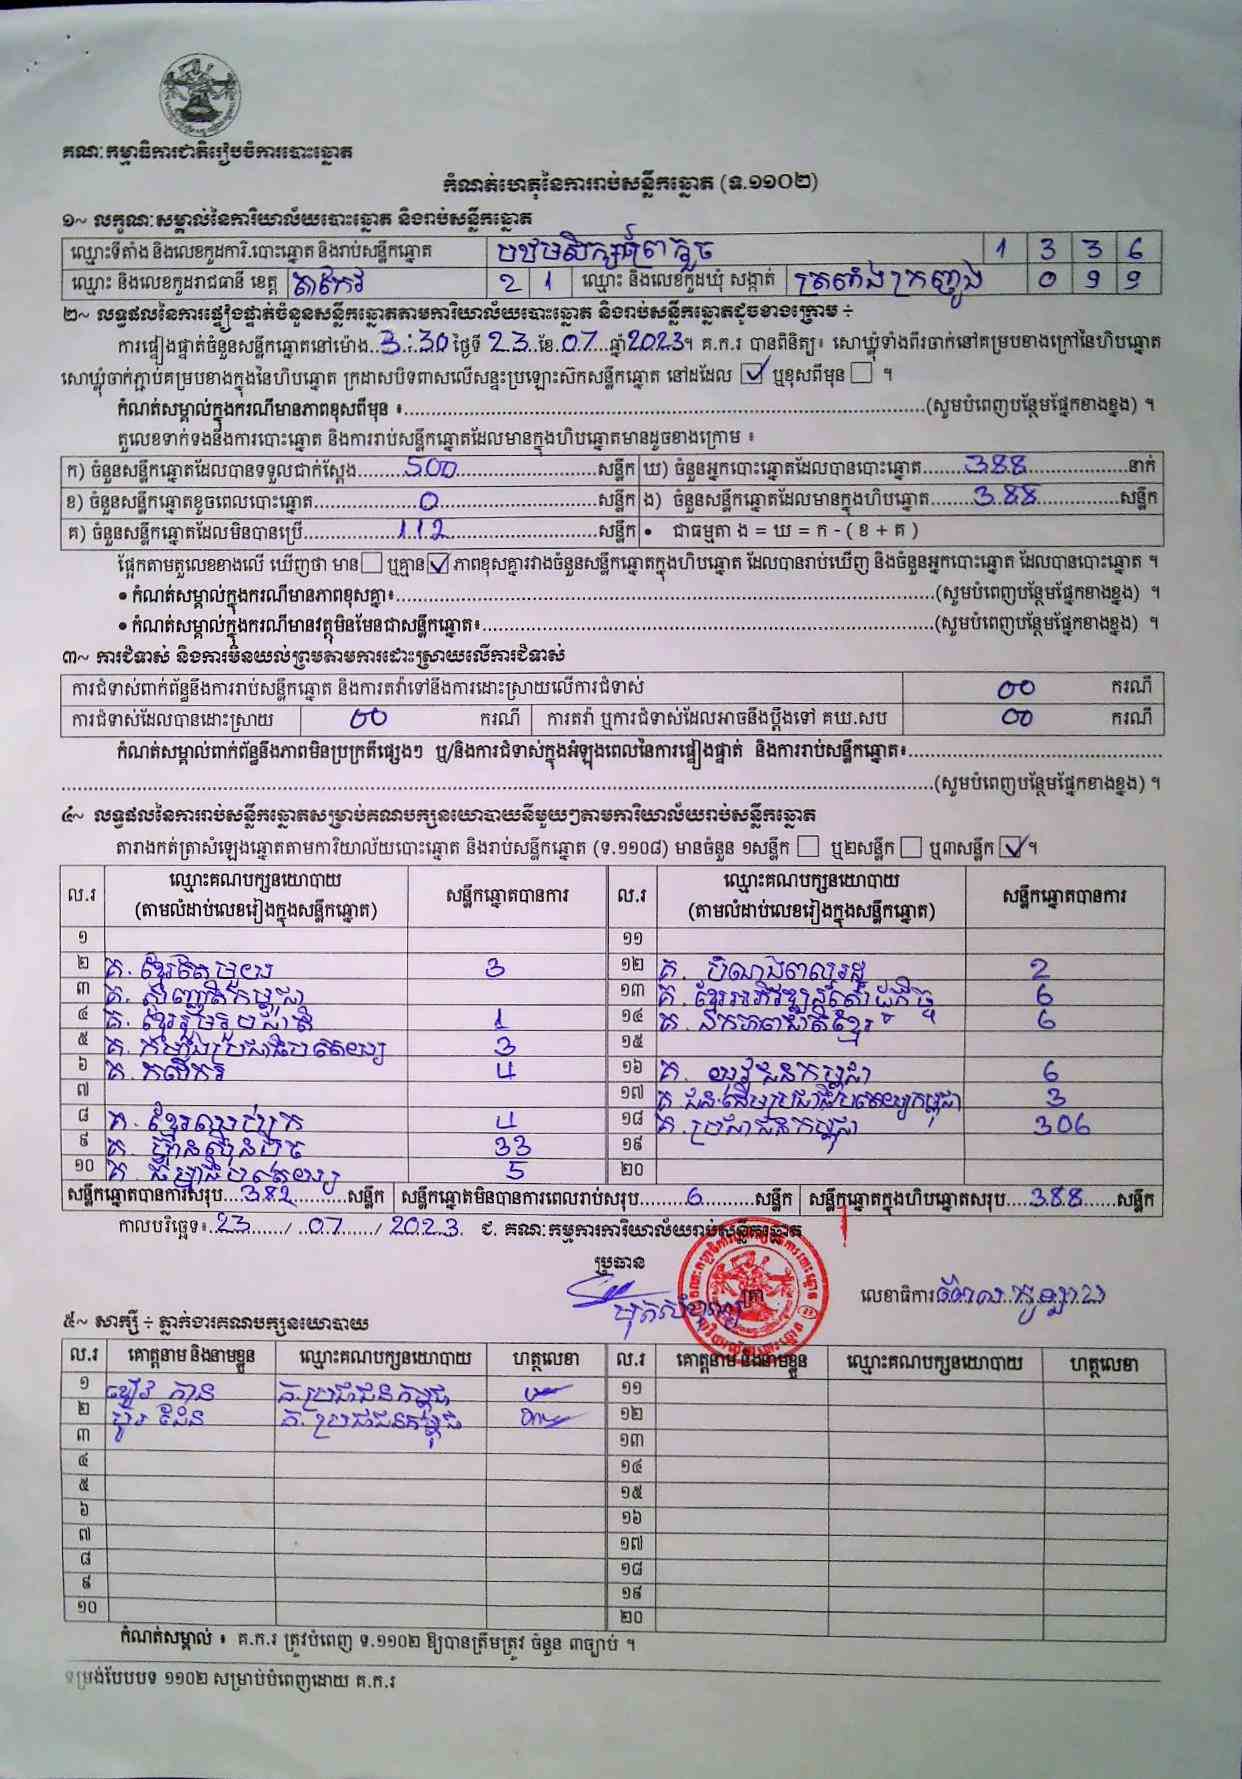 គណៈកម្មាធិការជាតិរៀបចំការបោះឆ្នោត
កំណត់ហេតុនៃការរាប់សន្លឹកឆ្នោត (ទ.១១០២)
១~ លក្ខណៈសម្គាល់នៃការិយាល័យបោះឆ្នោត និងរាប់សន្លឹកឆ្នោត
ឈ្មោះទីតាំង និងលេខកូដការិ.បោះឆ្នោត និងរាប់សន្លឹកឆ្នោត 1 3 3 6
ឈ្មោះ និងលេខកូដរាជធានី ខេត្ត តាកែវ 2 1 ឈ្មោះ និងលេខកូដឃុំ សង្កាត់ ត្រពាំងក្រញូង 0 9 9
២~ លទ្ធផលនៃការផ្ទៀងផ្ទាត់ចំនួនសន្លឹកឆ្នោតតាមការិយាល័យបោះឆ្នោត និងរាប់សន្លឹកឆ្នោតដូចខាងក្រោម ÷
ការផ្ទៀងផ្ទាត់ចំនួនសន្លឹកឆ្នោតនៅម៉ោង..3:30 ថ្ងៃទី 23 ខែ.07...ឆ្នាំ2023។ គ.ក.រ បានពិនិត្យ៖ សោឃ្លុំទាំងពីរចាក់នៅគម្របខាងក្រៅនៃហិបឆ្នោត
សោឃ្លុំចាក់ភ្ជាប់គម្របខាងក្នុងនៃហិបឆ្នោត ក្រដាសបិទពាសលើសន្ទះប្រឡោះស៊កសន្លឹកឆ្នោត នៅដដែល ☑ ឬខុសពីមុន ☐ ។
កំណត់សម្គាល់ក្នុងករណីមានភាពខុសពីមុន ៖..........(សូមបំពេញបន្ថែមផ្នែកខាងខ្នង) ។
តួលេខទាក់ទងនឹងការបោះឆ្នោត និងការរាប់សន្លឹកឆ្នោតដែលមានក្នុងហិបឆ្នោតមានដូចខាងក្រោម ៖
ក) ចំនួនសន្លឹកឆ្នោតដែលបានទទួលជាក់ស្តែង.....500.....សន្លឹក ឃ) ចំនួនអ្នកបោះឆ្នោតដែលបានបោះឆ្នោត.....388.....នាក់
ខ) ចំនួនសន្លឹកឆ្នោតខូចពេលបោះឆ្នោត.....0.....សន្លឹក ង) ចំនួនសន្លឹកឆ្នោតដែលមានក្នុងហិបឆ្នោត.....388.....សន្លឹក
គ) ចំនួនសន្លឹកឆ្នោតដែលមិនបានប្រើ.....112.....សន្លឹក • ជាធម្មតា ង = ឃ = ក - ( ខ + គ )
ផ្អែកតាមតួលេខខាងលើ ឃើញថា មាន ☐ ឬគ្មាន ☑ ភាពខុសគ្នារវាងចំនួនសន្លឹកឆ្នោតក្នុងហិបឆ្នោត ដែលបានរាប់ឃើញ និងចំនួនអ្នកបោះឆ្នោត ដែលបានបោះឆ្នោត ។
• កំណត់សម្គាល់ក្នុងករណីមានភាពខុសគ្នា៖..........(សូមបំពេញបន្ថែមផ្នែកខាងខ្នង) ។
• កំណត់សម្គាល់ក្នុងករណីមានវត្ថុមិនមែនជាសន្លឹកឆ្នោត៖..........(សូមបំពេញបន្ថែមផ្នែកខាងខ្នង) ។
៣~ ការជំទាស់ និងការមិនយល់ព្រមតាមការដោះស្រាយលើការជំទាស់
ការជំទាស់ពាក់ព័ន្ធនឹងការរាប់សន្លឹកឆ្នោត និងការតវ៉ាទៅនឹងការដោះស្រាយលើការជំទាស់ 00 ករណី
ការជំទាស់ដែលបានដោះស្រាយ 00 ករណី ការតវ៉ា ឬការជំទាស់ដែលអាចនឹងប្តឹងទៅ គឃ.សប 00 ករណី
កំណត់សម្គាល់ពាក់ព័ន្ធនឹងភាពមិនប្រក្រតីផ្សេងៗ ឬ/និងការជំទាស់ក្នុងអំឡុងពេលនៃការផ្ទៀងផ្ទាត់ និងការរាប់សន្លឹកឆ្នោត៖..........
..........(សូមបំពេញបន្ថែមផ្នែកខាងខ្នង) ។
៤~ លទ្ធផលនៃការរាប់សន្លឹកឆ្នោតសម្រាប់គណបក្សនយោបាយនីមួយៗតាមការិយាល័យរាប់សន្លឹកឆ្នោត
តារាងកត់ត្រាសំឡេងឆ្នោតតាមការិយាល័យបោះឆ្នោត និងរាប់សន្លឹកឆ្នោត (ទ.១១០៨) មានចំនួន ១សន្លឹក ☐ ឬ២សន្លឹក ☐ ឬ៣សន្លឹក ☑ ។
ល.រ ឈ្មោះគណបក្សនយោបាយ សន្លឹកឆ្នោតបានការ ល.រ ឈ្មោះគណបក្សនយោបាយ សន្លឹកឆ្នោតបានការ
(តាមលំដាប់លេខរៀងក្នុងសន្លឹកឆ្នោត) (តាមលំដាប់លេខរៀងក្នុងសន្លឹកឆ្នោត)
១ ១១
២ គ. ខ្មែរតែមួយ 3 ១២ គ. 2
៣ គ. កម្ពុជា ១៣ គ. ខ្មែរអភិវឌ្ឍន៍សេដ្ឋកិច្ច 6
៤ គ. ខ្មែររួបរួមជាតិ 1 ១៤ គ. ឯកភាពជាតិខ្មែរ 6
៥ គ. កម្លាំងប្រជាធិបតេយ្យ 3 ១៥
៦ គ. កសិករ 4 ១៦ គ. យុវជនកម្ពុជា 6
៧ ១៧ គ. ជនដើមប្រជាធិបតេយ្យកម្ពុជា 3
៨ គ. ខ្មែរឈប់ក្រ 4 ១៨ គ. ប្រជាជនកម្ពុជា 306
៩ គ. ហ៊្វុនស៊ិនប៉ិច 33 ១៩
១០ គ. ធម្មាធិបតេយ្យ 5 ២០
សន្លឹកឆ្នោតបានការសរុប...382...សន្លឹក សន្លឹកឆ្នោតមិនបានការពេលរាប់សរុប...6...សន្លឹក សន្លឹកឆ្នោតក្នុងហិបឆ្នោតសរុប...388...សន្លឹក
កាលបរិច្ឆេទ៖ 23 / 07 / 2023. ជ. គណៈកម្មការការិយាល័យរាប់សន្លឹកឆ្នោត
ប្រធាន ត្រា លេខាធិការ
៥~ សាក្សី ÷ ភ្នាក់ងារគណបក្សនយោបាយ
ល.រ គោត្តនាម និងនាមខ្លួន ឈ្មោះគណបក្សនយោបាយ ហត្ថលេខា ល.រ គោត្តនាម និងនាមខ្លួន ឈ្មោះគណបក្សនយោបាយ ហត្ថលេខា
១ គ. ប្រជាជនកម្ពុជា ១១
២ គ. ប្រជាជនកម្ពុជា ១២
៣ ១៣
៤ ១៤
៥ ១៥
៦ ១៦
៧ ១៧
៨ ១៨
៩ ១៩
១០ ២០
កំណត់សម្គាល់ ៖ គ.ក.រ ត្រូវបំពេញ ទ.១១០២ ឱ្យបានត្រឹមត្រូវ ចំនួន ៣ច្បាប់ ។
ទម្រង់បែបបទ ១១០២ សម្រាប់បំពេញដោយ គ.ក.រ